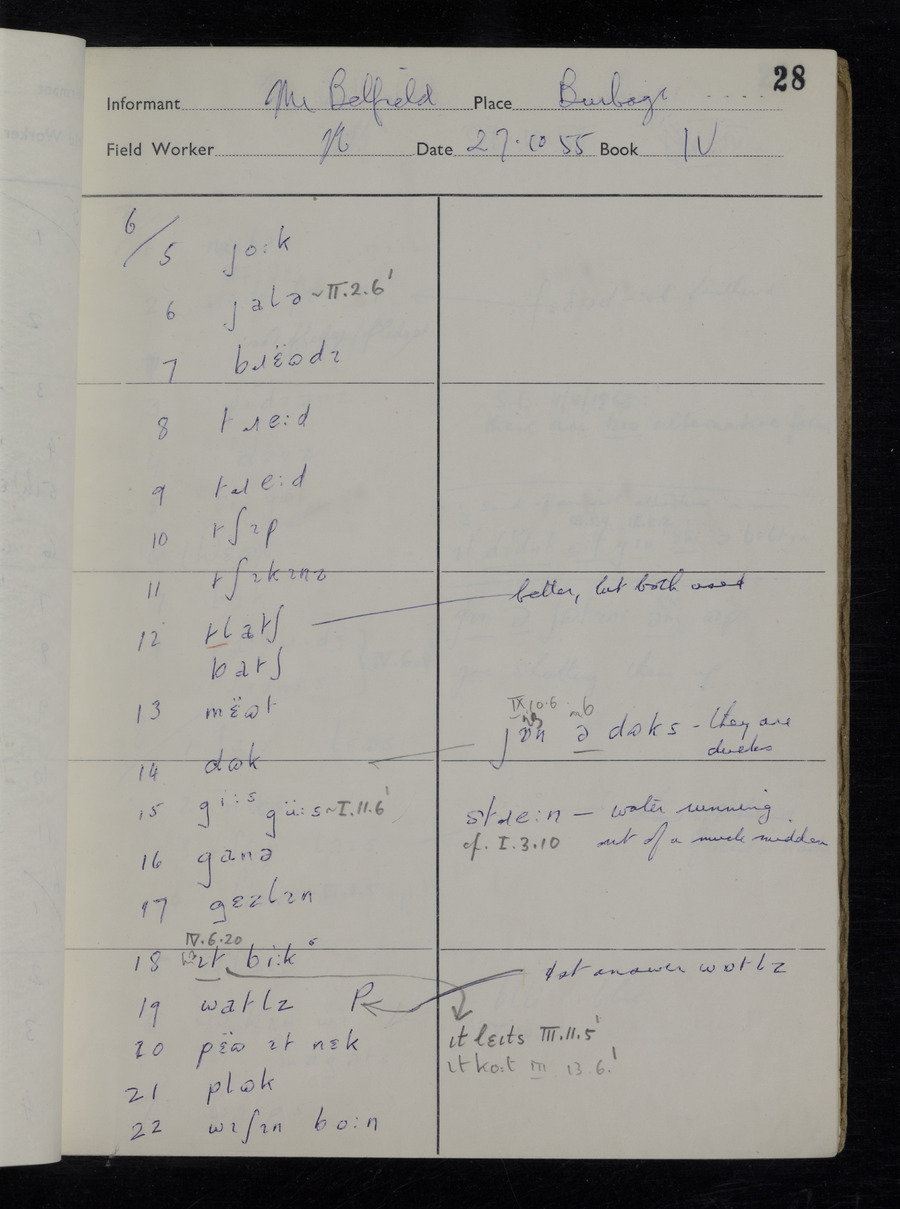 28
Informant Mr Belfield Place Burbage
Field Worker N Date 27.10 55 Book IV
6/5 jo:k
6 jalə ~II.2.6'
7 bɹɛ̈ɷdɪ
8 tɹe:d
9 tɹe:d
10 tʃɪp
11 tʃɪkɪnz
12 tlatʃ
better, but both used
batʃ
13 mɛ̈ɷt
IX.10.6
ə dɷks - they are
ducks
14 dɷk
15 gi:s gü:s ~I.11.6'
stɹe:n — water running
cf. I.3.10 out of a muck midden
16 ganə
17 gɛzlɪn
IV.6.20
18 ɪt bi:k
1st answer wɒtlz
19 watlz P
20 pɛ̈ɷ ɪt nɛk
ɪt lɛɪts III.11.5'
ɪt ko:t III 13.6.'
21 plɷk
22 wɪʃɪn bo:n